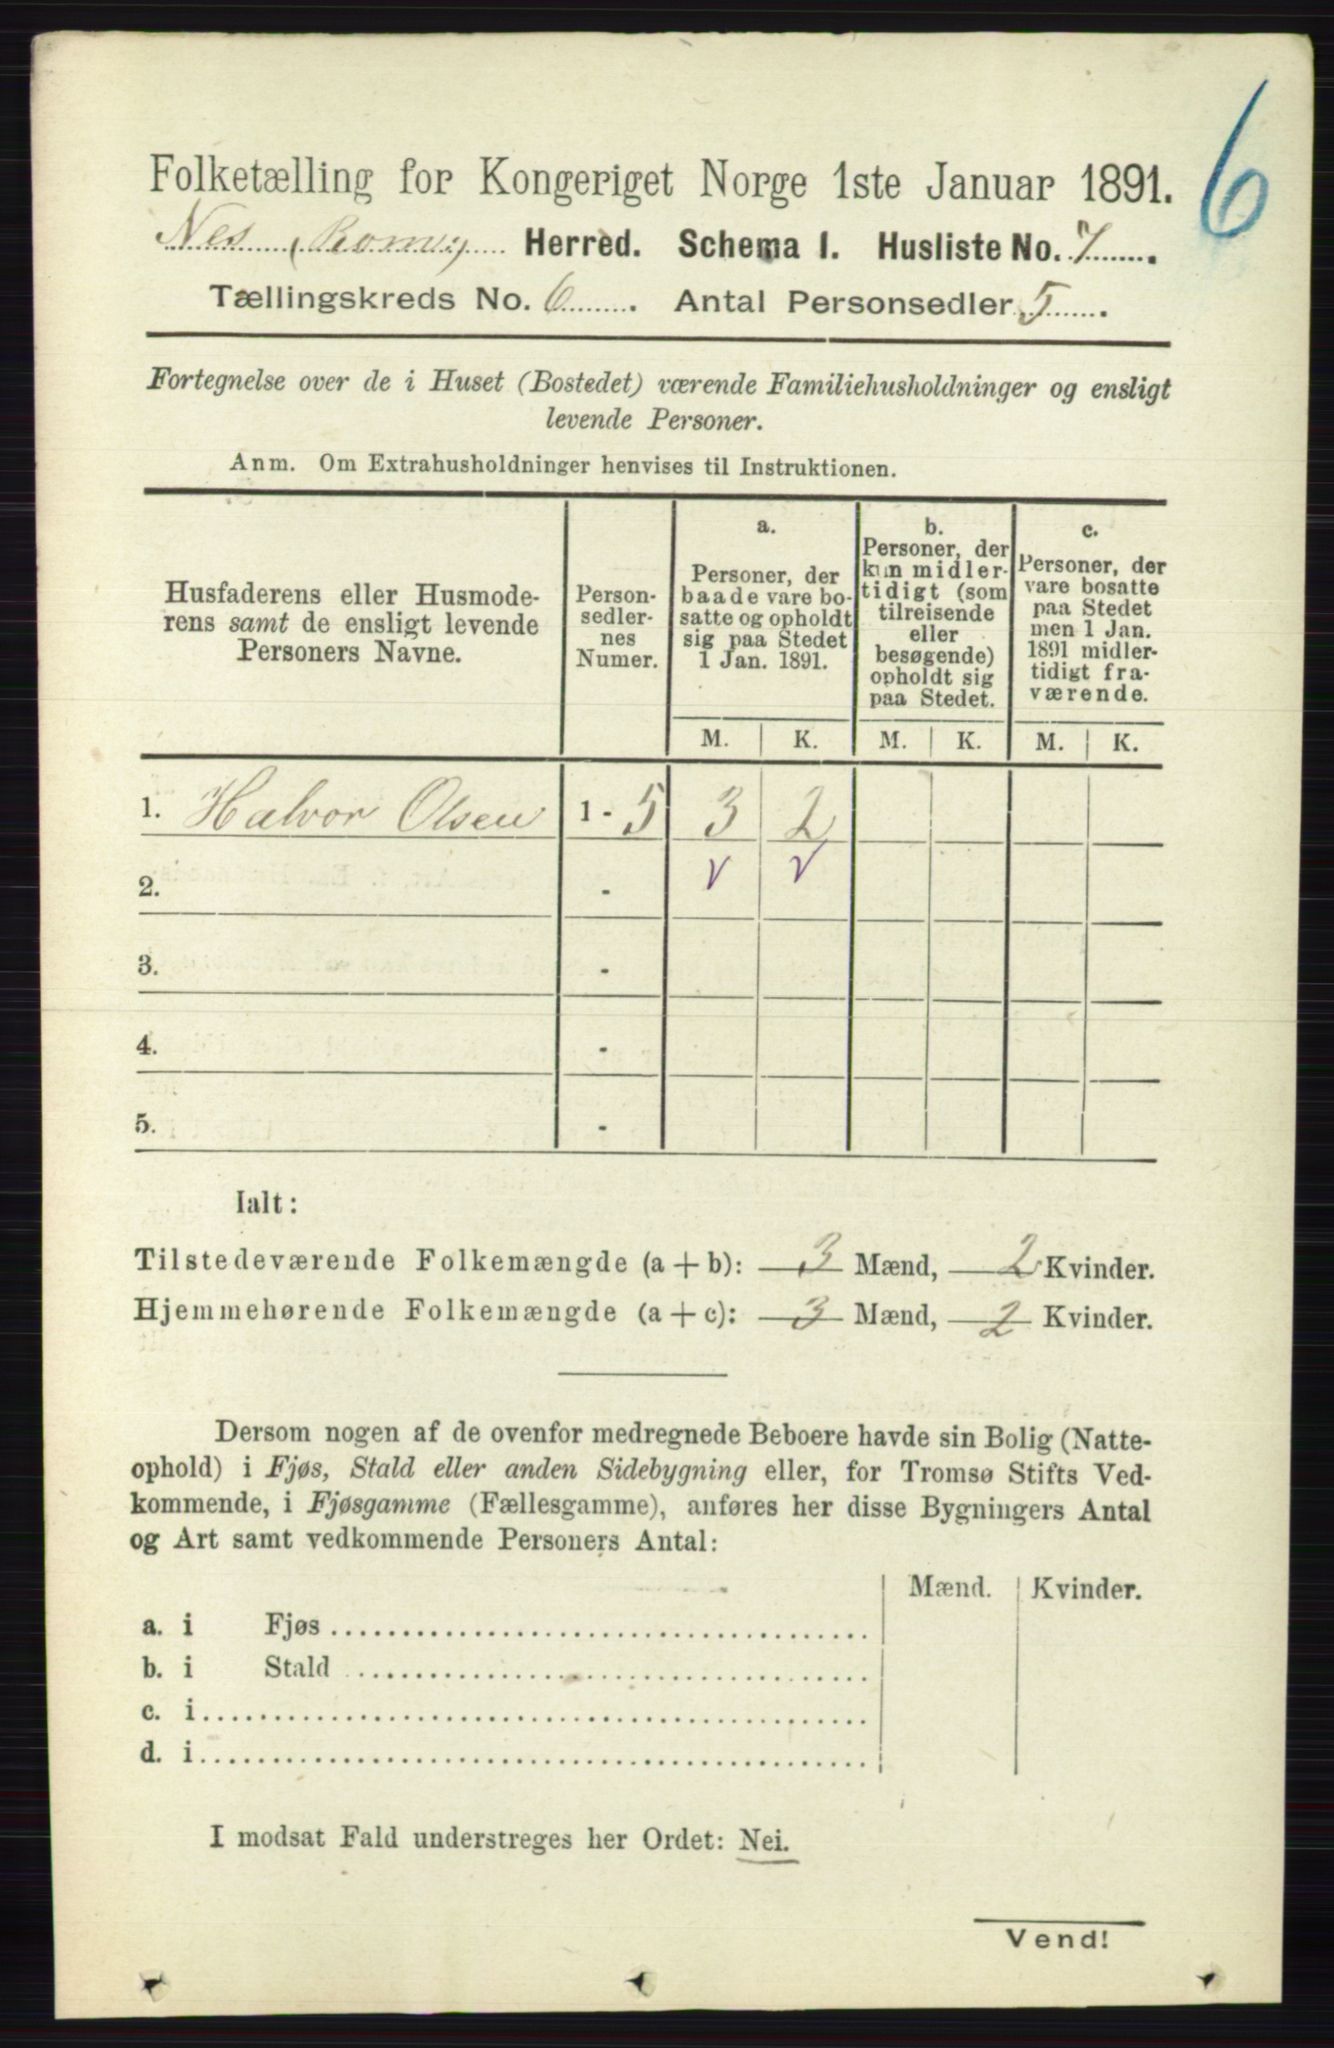 6
Folketælling for Kongeriget Norge 1ste Januar 1891.
Nes (Romer) Herred. Schema 1. Husliste No. 7.
Tællingskreds No. 6. Antal Personsedler 5.
Fortegnelse over de i Huset (Bostedet) værende Familiehusholdninger og ensligt
levende Personer.
Anm. Om Extrahusholdninger henvises til Instruktionen.
Husfaderens eller Husmode-
rens samt de ensligt levende
Personers Navne.
Person-
sedler-
nes
Numer.
a.
Personer, der
baade vare bo-
satte og opholdt
sig paa Stedet
1 Jan. 1891.
b.
Personer, der
kun midler-
tidigt (som
tilreisende
eller
besøgende)
opholdt sig
paa Stedet.
c.
Personer, der
vare bosatte
paa Stedet
men 1 Jan.
1891 midler-
tidigt fra-
værende.
M. K. M. K. M. K.
1. Halvor Olsen 1 - 5 3 2
2. - v v
3. -
4. -
5. -
Ialt:
Tilstedeværende Folkemængde (a + b): 3 Mænd, 2 Kvinder.
Hjemmehørende Folkemængde (a + c): 3 Mænd, 2 Kvinder.
Dersom nogen af de ovenfor medregnede Beboere havde sin Bolig (Natte-
ophold) i Fjøs, Stald eller anden Sidebygning eller, for Tromsø Stifts Ved-
kommende, i Fjøsgamme (Fællesgamme), anføres her disse Bygningers Antal
og Art samt vedkommende Personers Antal:
Mænd. Kvinder.
a. i Fjøs
b. i Stald
c. i
d. i
I modsat Fald understreges her Ordet: Nei.
Vend!